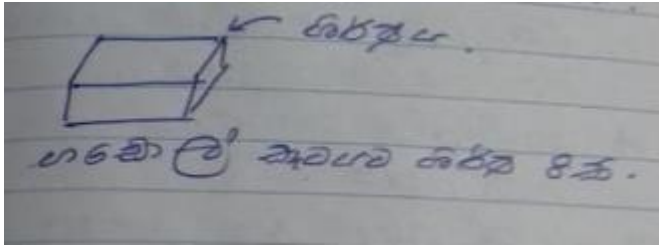 ශීර්ෂය.
ගඩොල් කැටයට ශීර්ෂ 8යි.